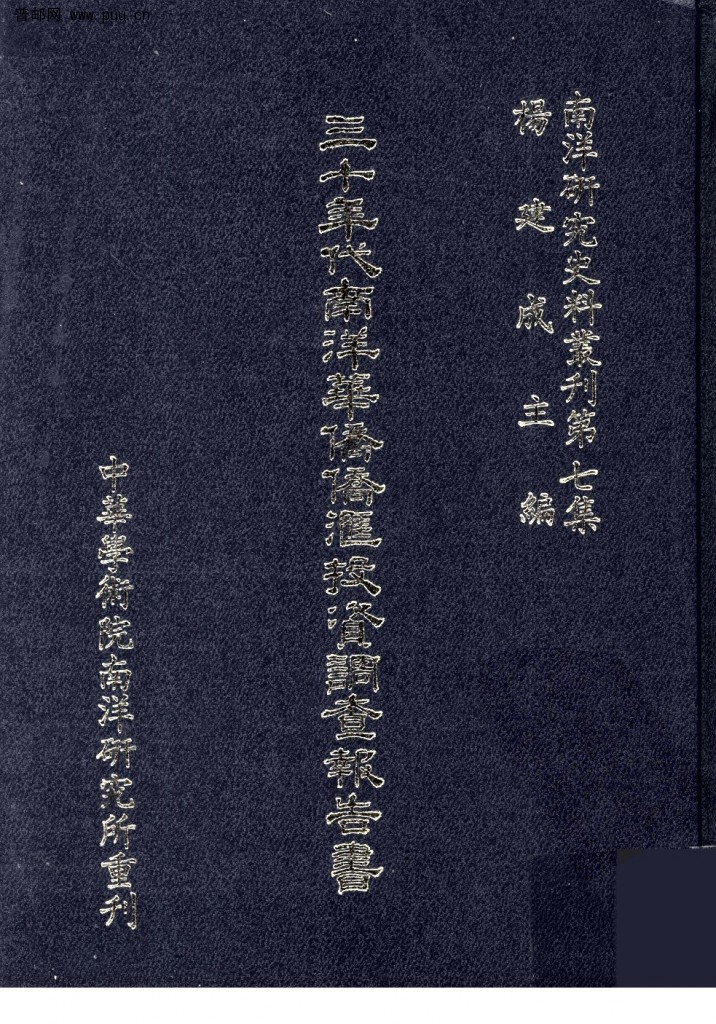 普邮网 www.puu.cn
南洋研究史料叢刊第七集
楊建成主編
三十年代南洋華僑僑滙投資調查報告書
中華學術院南洋研究所重刊